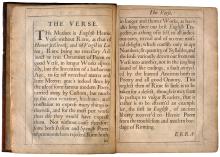 THE VERSE.
THE Measure is English Heroic
Verse without Rime, as that of
Homer in Greek, and of Virgil in Latin;
Rime being no necessary Adjunct
or true Ornament of Poem or
good Verse, in longer Works especially,
but the Invention of a barbarous
Age, to set off wretched matter and
lame Meeter; grac't indeed since by
the use of some famous modern Poets,
carried away by Custom, but much
to thir own vexation, hindrance, and
constraint to express many things otherwise,
and for the most part worse
then else they would have exprest
them. Not without cause therefore
some both Italian and Spanish Poets
of prime note have rejected Rime both
The Verse.
in longer and shorter Works, as have
also long since our best English Tragedies,
as a thing of it self, to all judicious
eares, triveal and of no true musical
delight; which consists onely in apt
Numbers, fit quantity of Syllables, and
the sense variously drawn out from one
Verse into another, not in the jingling
sound of like endings, a fault avoyded
by the learned Ancients both in
Poetry and all good Oratory. This
neglect then of Rime so little is to be
taken for a defect, though it may seem
so perhaps to vulgar Readers, that it
rather is to be esteem'd an example
set, the first in English, of ancient
liberty recover'd to Heroic Poem
from the troublesom and modern bondage
of Rimeing.